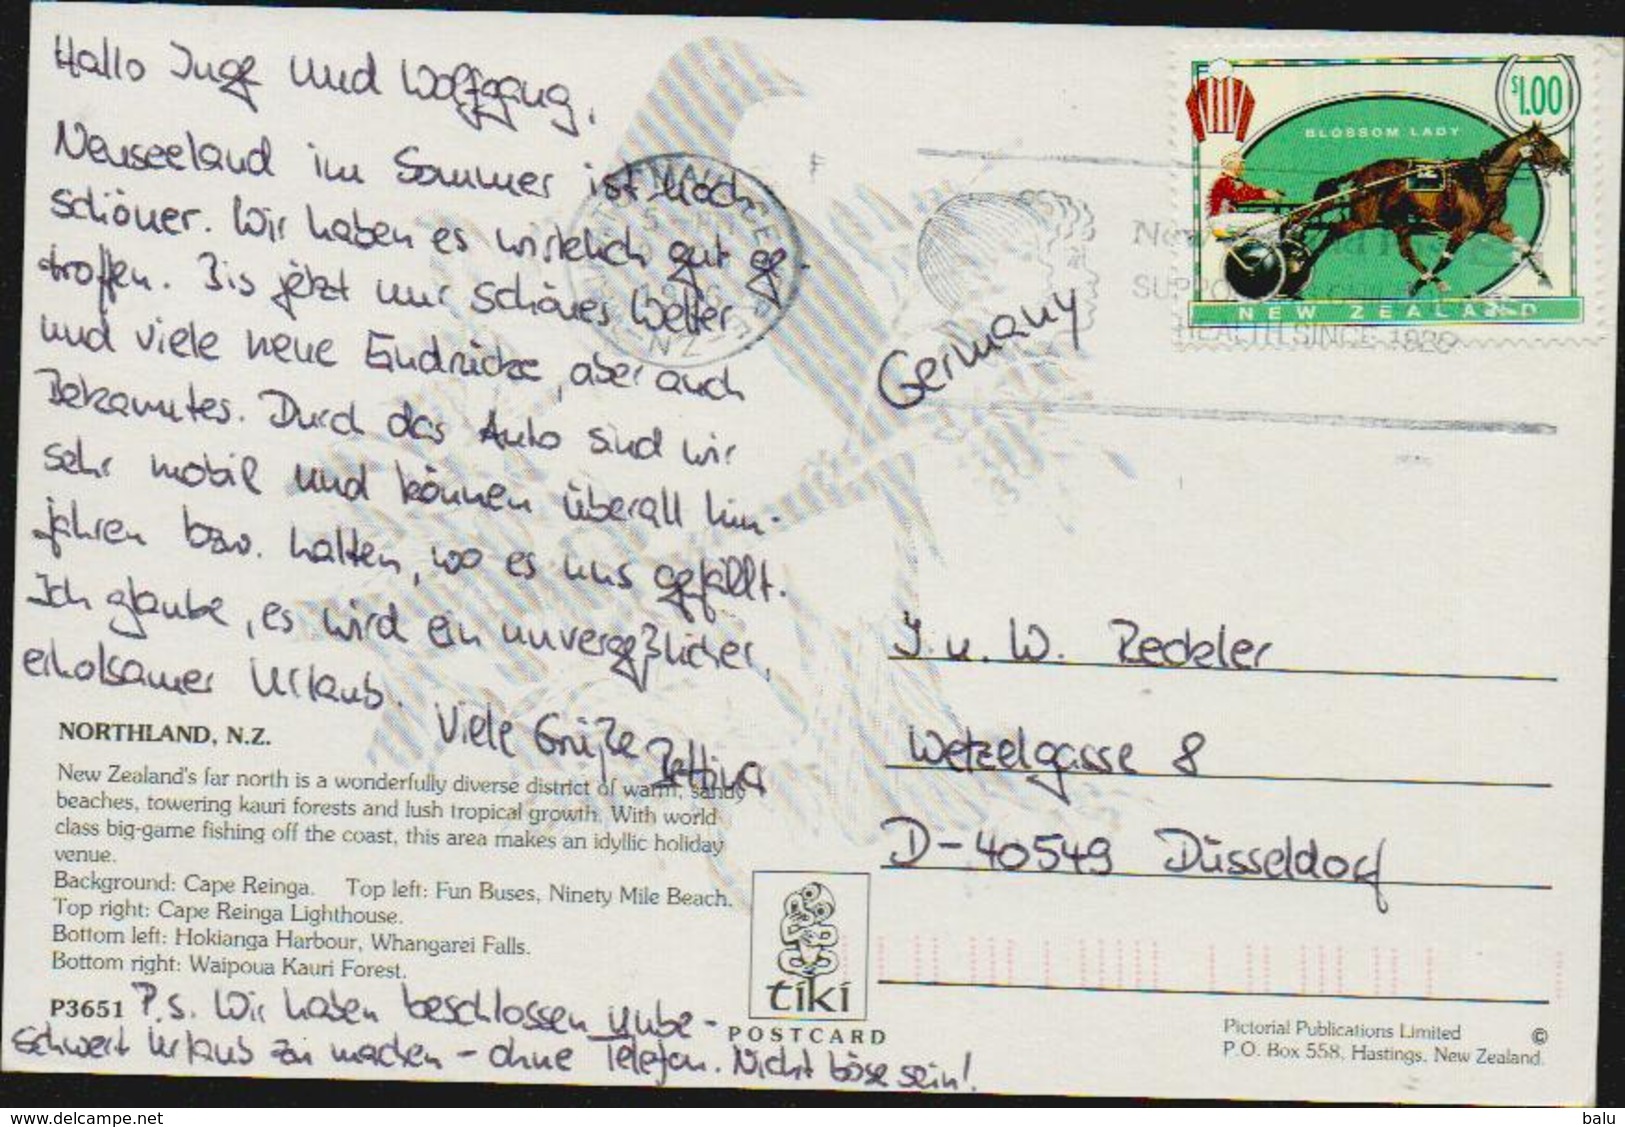 Hallo Inge und Wolfgang,
Neuseeland im Sommer ist noch
schöner. Wir haben es wirklich gut ge-
troffen. Bis jetzt nur schönes Wetter
und viele neue Eindrücke, aber auch
Bekanntes. Durch das Auto sind wir
sehr mobil und können überall hin-
fahren bzw. halten, wo es uns gefällt.
Ich glaube, es wird ein unvergeßlicher,
erholsamer Urlaub.
Viele Grüße Bettina
NORTHLAND, N.Z.
New Zealand's far north is a wonderfully diverse district of warm, sandy
beaches, towering kauri forests and lush tropical growth. With world
class big-game fishing off the coast, this area makes an idyllic holiday
venue.
Background: Cape Reinga. Top left: Fun Buses, Ninety Mile Beach.
Top right: Cape Reinga Lighthouse.
Bottom left: Hokianga Harbour, Whangarei Falls.
Bottom right: Waipoua Kauri Forest.
P3651
P.S. Wir haben beschlossen unbe-
schwert Urlaub zu machen - ohne Telefon. Nicht böse sein!
tiki
POSTCARD
$1.00
BLOSSOM LADY
NEW ZEALAND
New
HEALTH SINCE 1929
N.Z.
Germany
I. u. W. Redeler
Wetzelgasse 8
D-40549 Düsseldorf
Pictorial Publications Limited ©
P.O. Box 558, Hastings, New Zealand.
delcampe.net
balu